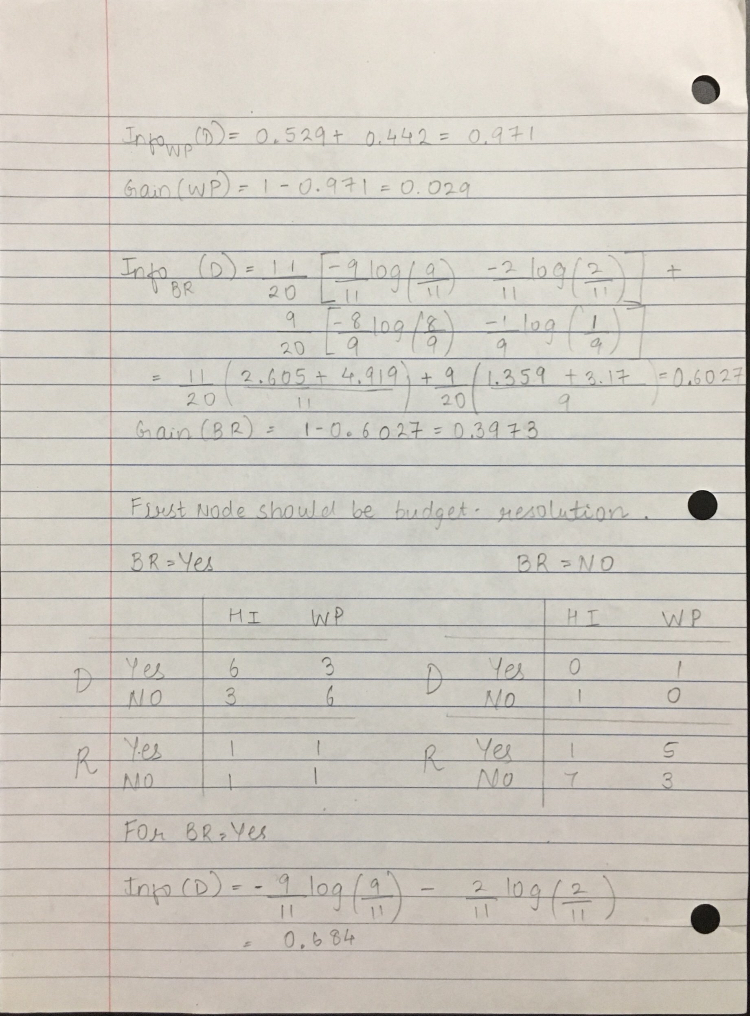 Info_WP (D) = 0.529 + 0.442 = 0.971
Gain (WP) = 1 - 0.971 = 0.029
Info_BR (D) = 11/20 [ -9/11 log (9/11) -2/11 log (2/11) ] +
9/20 [ -8/9 log (8/9) -1/9 log (1/9) ]
= 11/20 ( (2.605 + 4.919)/11 ) + 9/20 ( (1.359 + 3.17)/9 ) = 0.6027
Gain (BR) = 1 - 0.6027 = 0.3973
First Node should be budget - resolution.
BR = Yes BR = NO
HI WP HI WP
D Yes 6 3 D Yes 0 1
NO 3 6 NO 1 0
R Yes 1 1 R Yes 1 5
NO 1 1 NO 7 3
For BR = Yes
Info (D) = - 9/11 log (9/11) - 2/11 log (2/11)
= 0.684